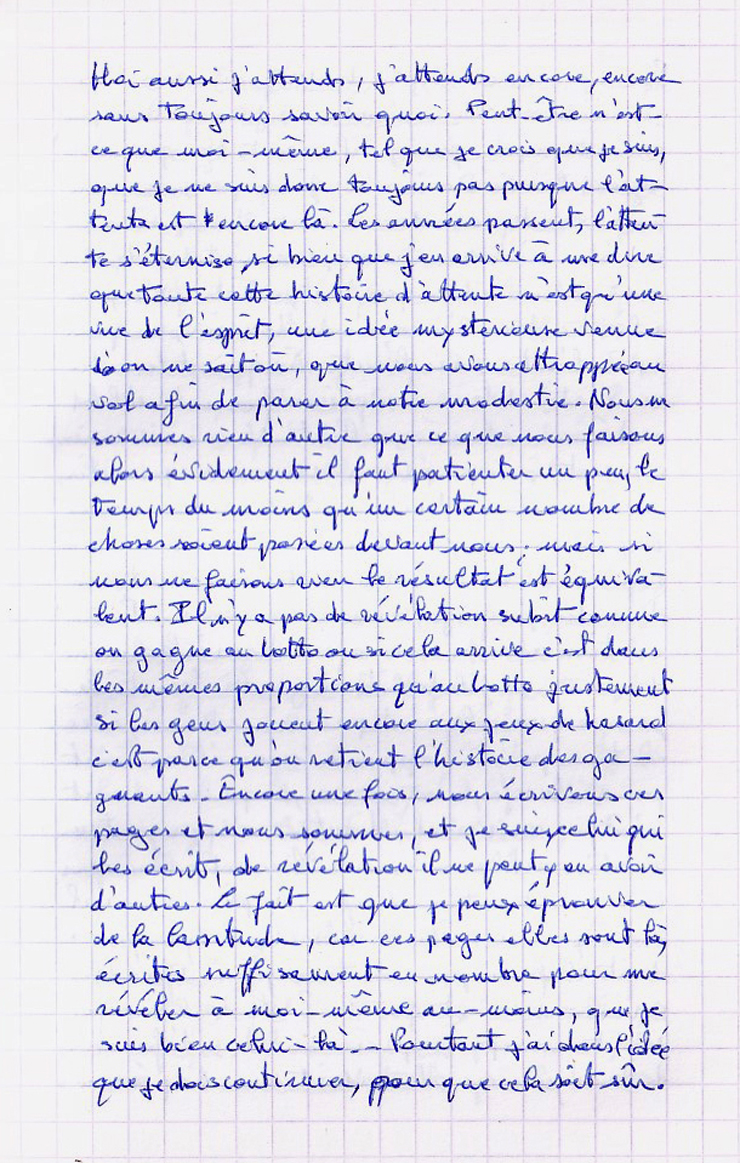 Moi aussi j'attends, j'attends encore, encore
sans toujours savoir quoi. Peut-être n'est-
ce que moi-même, tel que je crois que je suis,
que je ne suis donc toujours pas puisque l'at-
tente est encore là. Les années passent, l'atten-
te s'éternise, si bien que j'en arrive à me dire
que toute cette histoire d'attente n'est qu'une
vue de l'esprit, une idée mystérieuse venue
d'on ne sait où, que nous avons attrappée au
vol afin de parer à notre modestie. Nous ne
sommes rien d'autre que ce que nous faisons
alors évidement il faut patienter un peu, le
temps du moins qu'un certain nombre de
choses soient posées devant nous; mais si
nous ne faisons rien le résultat est équiva-
lent. Il n'y a pas de révélation subit comme
on gagne au lotto ou si cela arrive c'est dans
les mêmes proportions qu'au lotto justement
si les gens jouent encore aux jeux de hasard
c'est parce qu'on retient l'histoire des ga-
gnants. Encore une fois, nous écrivons ces
pages et nous sommes, et je suis celui qui
les écrit, de révélation il ne peut y en avoir
d'autres. Le fait est que je peux éprouver
de la lassitude, car ces pages elles sont là,
écrites suffisament en nombre pour me
révéler à moi-même au-moins, que je
suis bien celui-là. - Pourtant j'ai dans l'idée
que je dois continuer, pour que cela soit sûr.